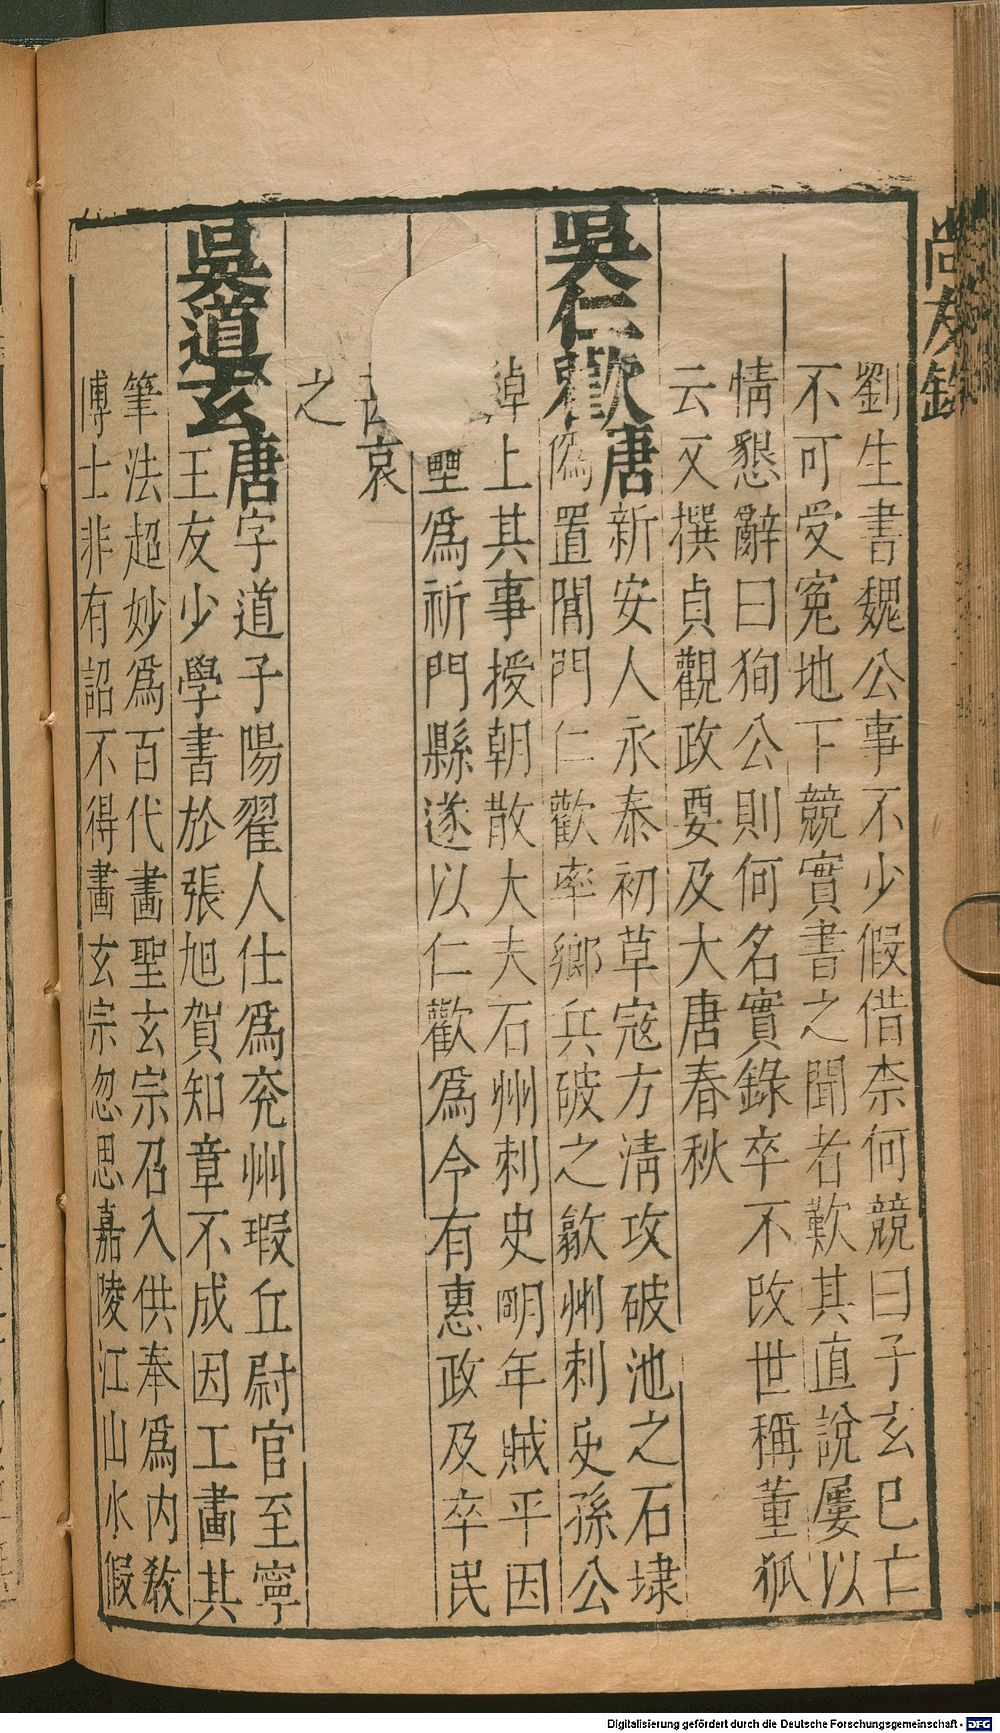 尚友錄
劉生書魏公事不少假借柰何競曰子玄已亡
不可受冤地下競實書之聞者歎其直說屢以
情懇辭曰狥公則何名實錄卒不改世稱董狐
云又撰貞觀政要及大唐春秋
吳仁歡唐新安人永泰初草寇方清攻破池之石埭
偽置閶門仁歡率鄉兵破之歙州刺史孫公
綽上其事授朝散大夫石州刺史明年賊平因
壘爲祈門縣遂以仁歡爲令有惠政及卒民
哀
之
吳道玄唐字道子陽翟人仕爲兖州瑕丘尉官至寧
王友少學書於張旭賀知章不成因工畫其
筆法超妙爲百代畫聖玄宗召入供奉爲内教
博士非有詔不得畫玄宗忽思嘉陵江山水假
Digitalisierung gefördert durch die Deutsche Forschungsgemeinschaft - DFG